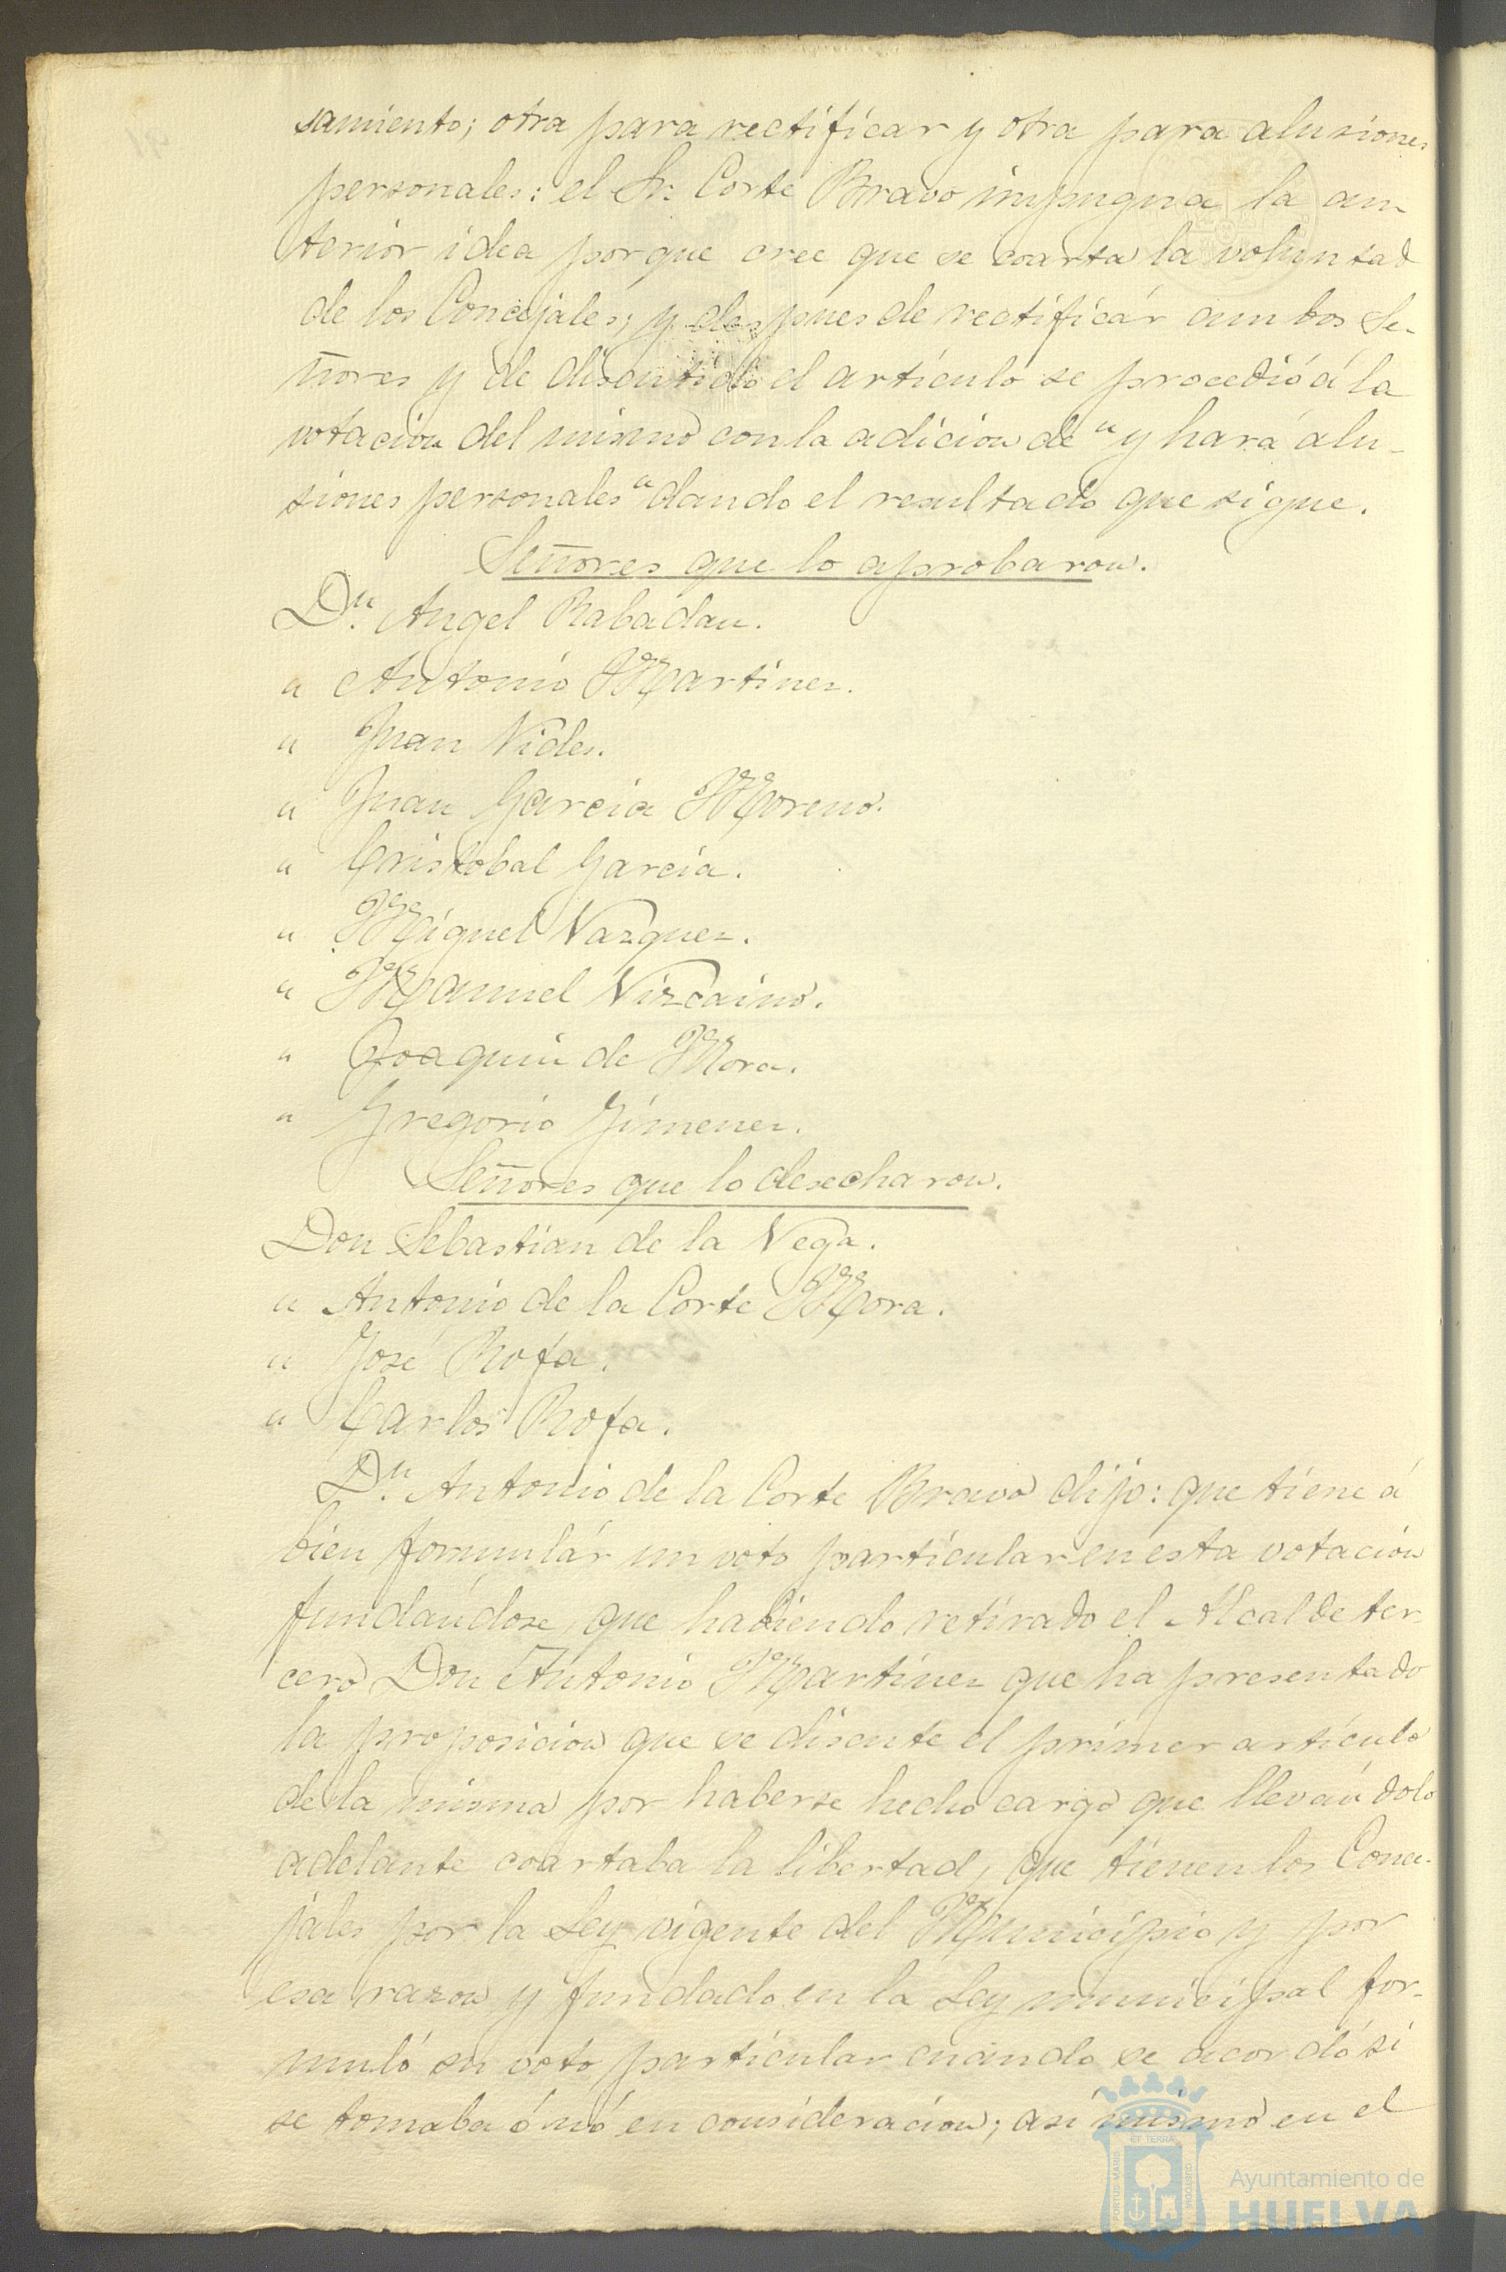 samiento; otra para rectificar y otra para alusiones
personales: el Sr. Corte Bravo impugna la an-
terior idea porque cree que se coarta la voluntad
de los Concejales; y despues de rectificár ambos Se-
ñores y de discutido el artículo se procedió á la
votacion del mismo con la adicion de " y hará alu-
siones personales " dando el resultado que sigue.
Señores que lo aprobaron.
Dn. Angel Rabadan.
" Antonio Martinez.
" Juan Vides.
" Juan Garcia Moreno.
" Cristobal Garcia.
" Miguel Vazquez.
" Manuel Vizcaino.
" Joaquin de Mora.
" Gregorio Jimenez.
Señores que lo desecharon.
Don Sebastian de la Vega.
" Antonio de la Corte Mora.
" José Rofa.
" Carlos Rofa.
Dn. Antonio de la Corte Bravo dijo: que tiene á
bien formulár un voto particular en esta votacion
fundándose, que habiendo retirado el Alcalde ter-
cero Don Antonio Martinez que ha presentado
la proposicion que se discute el primer artículo
de la misma por haberse hecho cargo que llevándolo
adelante coartaba la libertad, que tienen los Conce-
jales por la Ley vigente del Municipio y por
esa razon y fundado en la Ley municipal for-
muló su voto particular cuando se acordó si
se tomaba ó nó en consideracion; asi mismo en el
PORTUS MARIS
ET TERRÆ
CUSTODIA
Ayuntamiento de
HUELVA